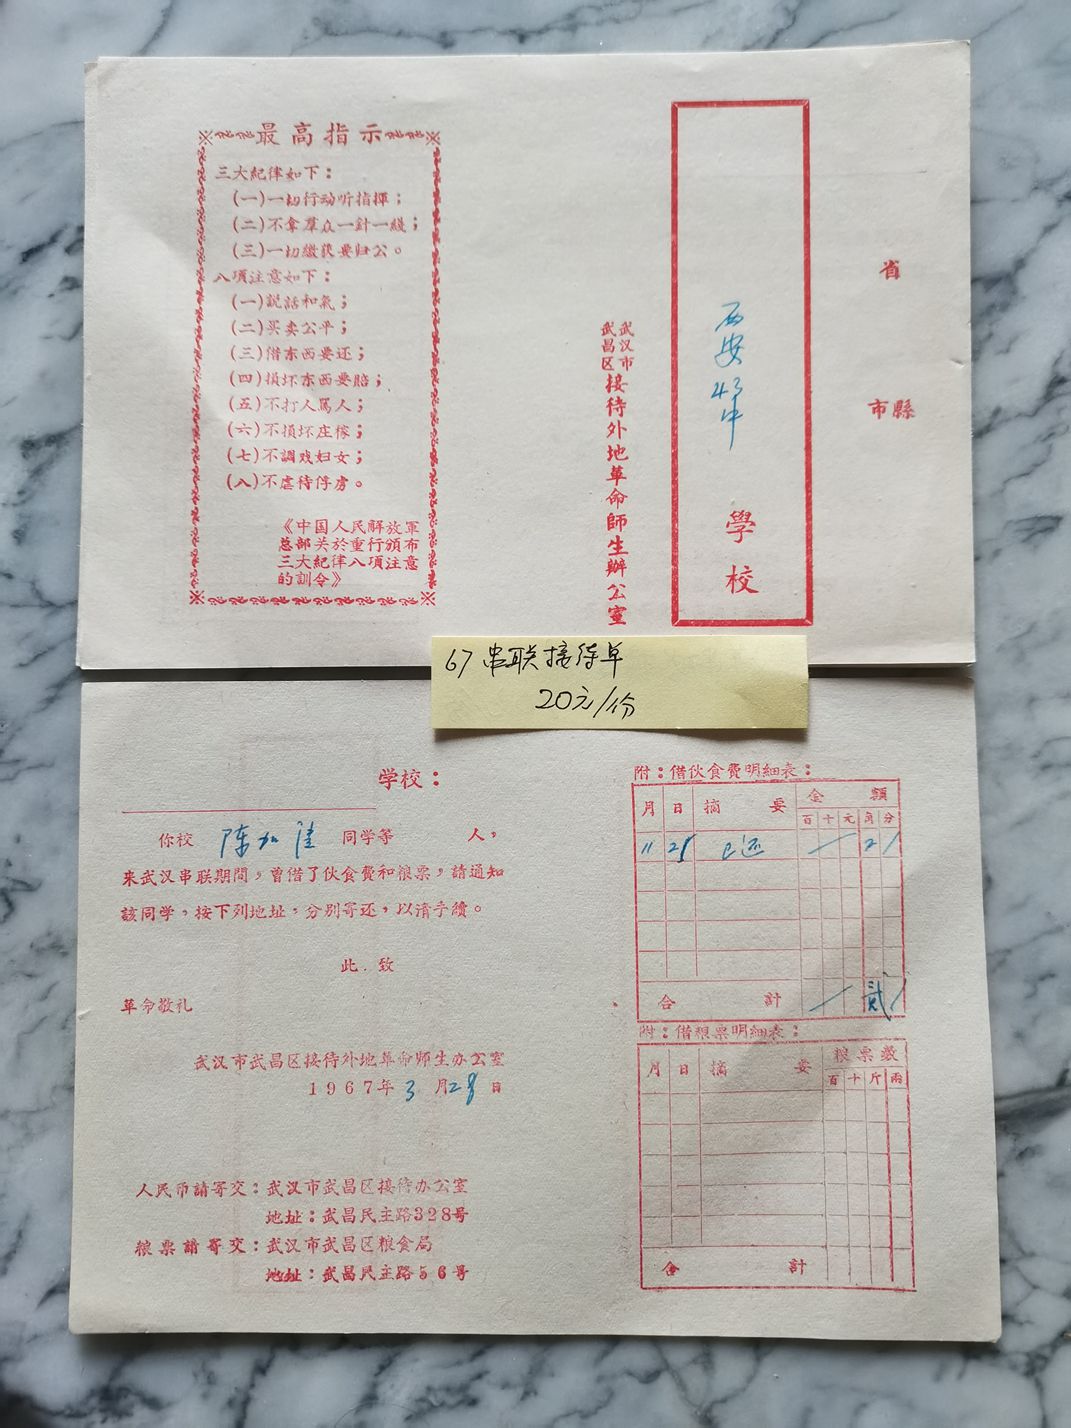 最高指示
三大紀律如下：
(一)一切行动听指揮；
(二)不拿羣众一針一綫；
(三)一切繳获要归公。
八項注意如下：
(一)説話和氣；
(二)买卖公平；
(三)借东西要还；
(四)損坏东西要賠；
(五)不打人駡人；
(六)不損坏庄稼；
(七)不調戏妇女；
(八)不虐待俘虏。
《中国人民解放軍
总部关於重行頒布
三大紀律八項注意
的訓令》
省
市縣
西安43中
學校
武汉市
武昌区
接待外地革命師生辦公室
67串联接待单
20元/份
学校：
你校 陈加 同学等 人，
来武汉串联期間，曾借了伙食費和粮票，請通知
該同学，按下列地址，分别寄还，以清手續。
此 致
革命敬礼
武汉市武昌区接待外地革命师生办公室
1967年3月28日
人民币請寄交：武汉市武昌区接待办公室
地址：武昌民主路328号
粮票請寄交：武汉市武昌区粮食局
地址：武昌民主路56号
附：借伙食費明細表：
月 日 摘要 金額
百 十 元 角 分
11 25 已还 2
合計 贰
附：借粮票明細表：
月 日 摘要 粮票数
百 十 斤 兩
合計